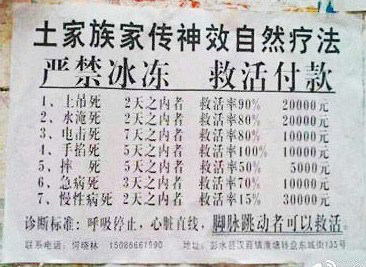 土家族家传神效自然疗法
严禁冰冻 救活付款
1、上吊死 2天之内者 救活率90% 20000元
2、水淹死 2天之内者 救活率80% 20000元
3、电击死 7天之内者 救活率80% 10000元
4、手掐死 5天之内者 救活率100% 10000元
5、摔 死 5天之内者 救活率50% 5000元
6、急病死 3天之内者 救活率70% 10000元
7、慢性病死 2天之内者 救活率15% 30000元
诊断标准：呼吸停止，心脏直线，脚脉跳动者可以救活。
联系电话：何晓林 15086661590 地址：彭水县汉葭镇